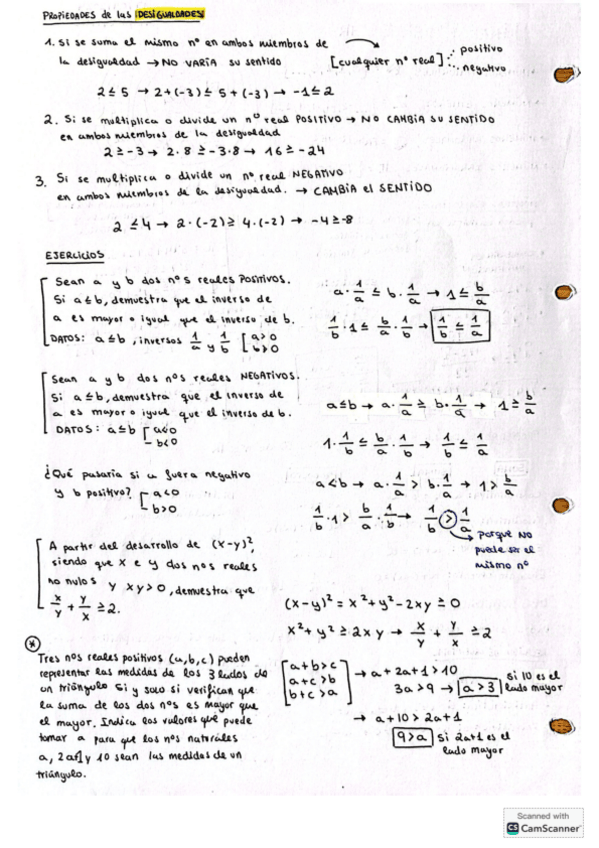 PROPIEDADES de las DESIGUALDADES
1. Si se suma el mismo nº en ambos miembros de
la desigualdad → NO VARÍA su sentido [cualquier nº real] positivo
negativo
2 ≤ 5 → 2+(-3) ≤ 5+(-3) → -1 ≤ 2
2. Si se multiplica o divide un nº real POSITIVO → NO CAMBIA SU SENTIDO
en ambos miembros de la desigualdad
2 ≥ -3 → 2·8 ≥ -3·8 → 16 ≥ -24
3. Si se multiplica o divide un nº real NEGATIVO
en ambos miembros de la desigualdad. → CAMBIA el SENTIDO
2 ≤ 4 → 2·(-2) ≥ 4·(-2) → -4 ≥ -8
EJERCICIOS
Sean a y b dos nºs reales POSITIVOS.
Si a ≤ b, demuestra que el inverso de
a es mayor o igual que el inverso de b.
DATOS: a ≤ b, inversos 1/a y 1/b [a>0
b>0
a · 1/a ≤ b · 1/a → 1 ≤ b/a
1/b · 1 ≤ b/a · 1/b → 1/b ≤ 1/a
Sean a y b dos nºs reales NEGATIVOS.
Si a ≤ b, demuestra que el inverso de
a es mayor o igual que el inverso de b.
DATOS: a ≤ b [a<0
b<0
a ≤ b → a · 1/a ≥ b · 1/a → 1 ≥ b/a
1 · 1/b ≤ b/a · 1/b → 1/b ≤ 1/a
¿Qué pasaría si a fuera negativo
y b positivo? [a<0
b>0
a < b → a · 1/a > b · 1/a → 1 > b/a
1/b · 1 > b/a · 1/b → 1/b > 1/a
porque NO
puede ser el
mismo nº
A partir del desarrollo de (x-y)²,
siendo que x e y dos nºs reales
no nulos y xy>0, demuestra que
x/y + y/x ≥ 2.
(x-y)² = x² + y² - 2xy ≥ 0
x² + y² ≥ 2xy → x/y + y/x ≥ 2
*
Tres nºs reales positivos (a,b,c) pueden
representar las medidas de los 3 lados de
un triángulo si y solo si verifican que
la suma de los dos nºs es mayor que
el mayor. Indica los valores que puede
tomar a para que los nºs naturales
a, 2a+1 y 10 sean las medidas de un
triángulo.
[a+b>c
a+c>b
b+c>a]
→ a+2a+1>10
3a>9 → a>3 si 10 es el
lado mayor
→ a+10>2a+1
9>a si 2a+1 es el
lado mayor
Scanned with
CS CamScanner